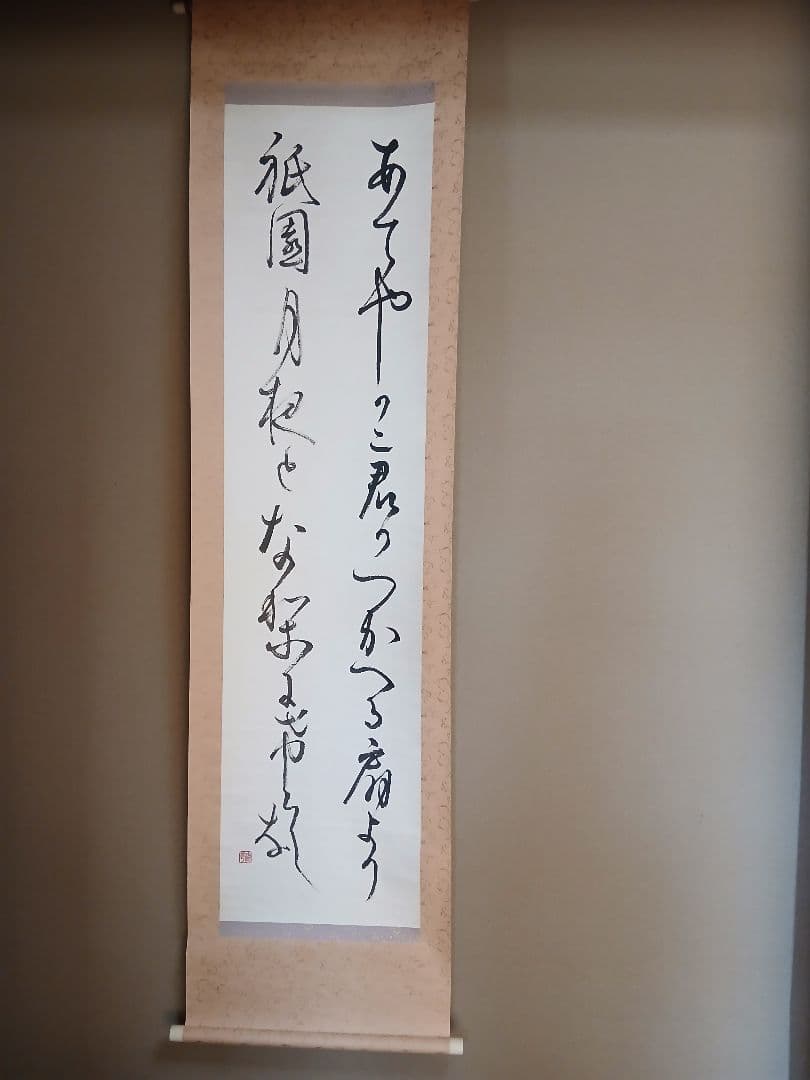 あてやかに君かつかへる扇より
祇園月夜とな梨尓希らしな